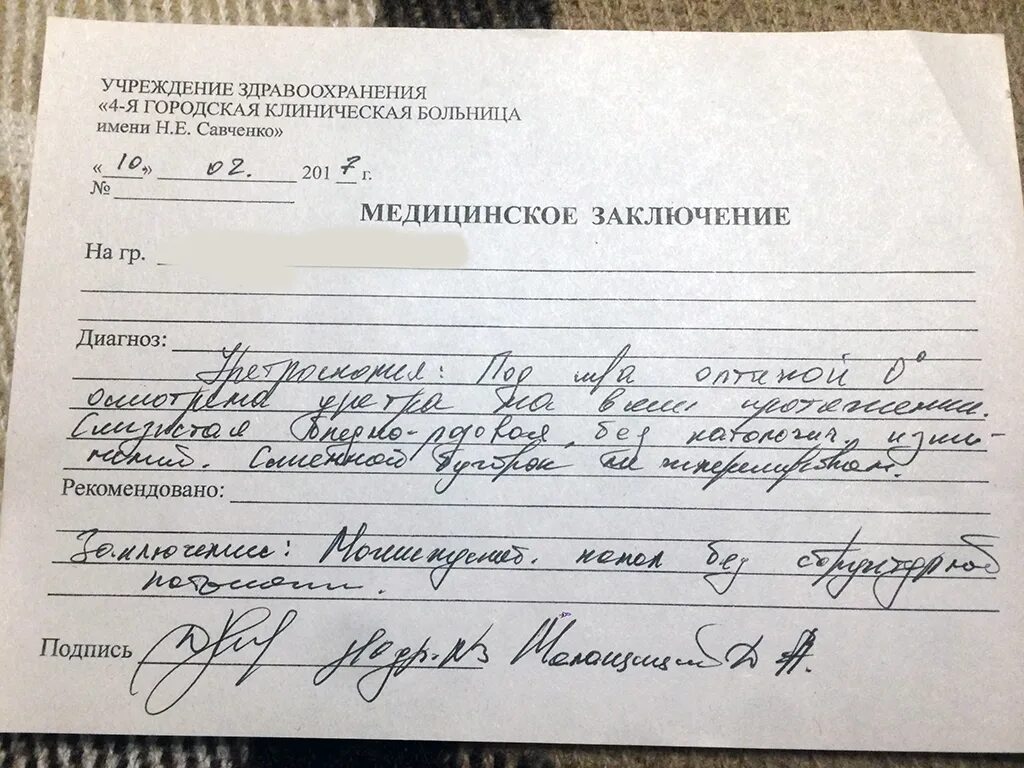 УЧРЕЖДЕНИЕ ЗДРАВООХРАНЕНИЯ
«4-Я ГОРОДСКАЯ КЛИНИЧЕСКАЯ БОЛЬНИЦА
имени Н.Е. Савченко»
«10» 02. 2017 г.
№
МЕДИЦИНСКОЕ ЗАКЛЮЧЕНИЕ
На гр.
Диагноз:
Уретроскопия: Под м/а оптикой 0°
осмотрена уретра на всем протяжении.
Слизистая бледно-розовая, без патологич. изме-
нений. Семенной бугорок не
Рекомендовано:
Заключение: Мочеиспускат. канал без структурной
патологии.
Подпись